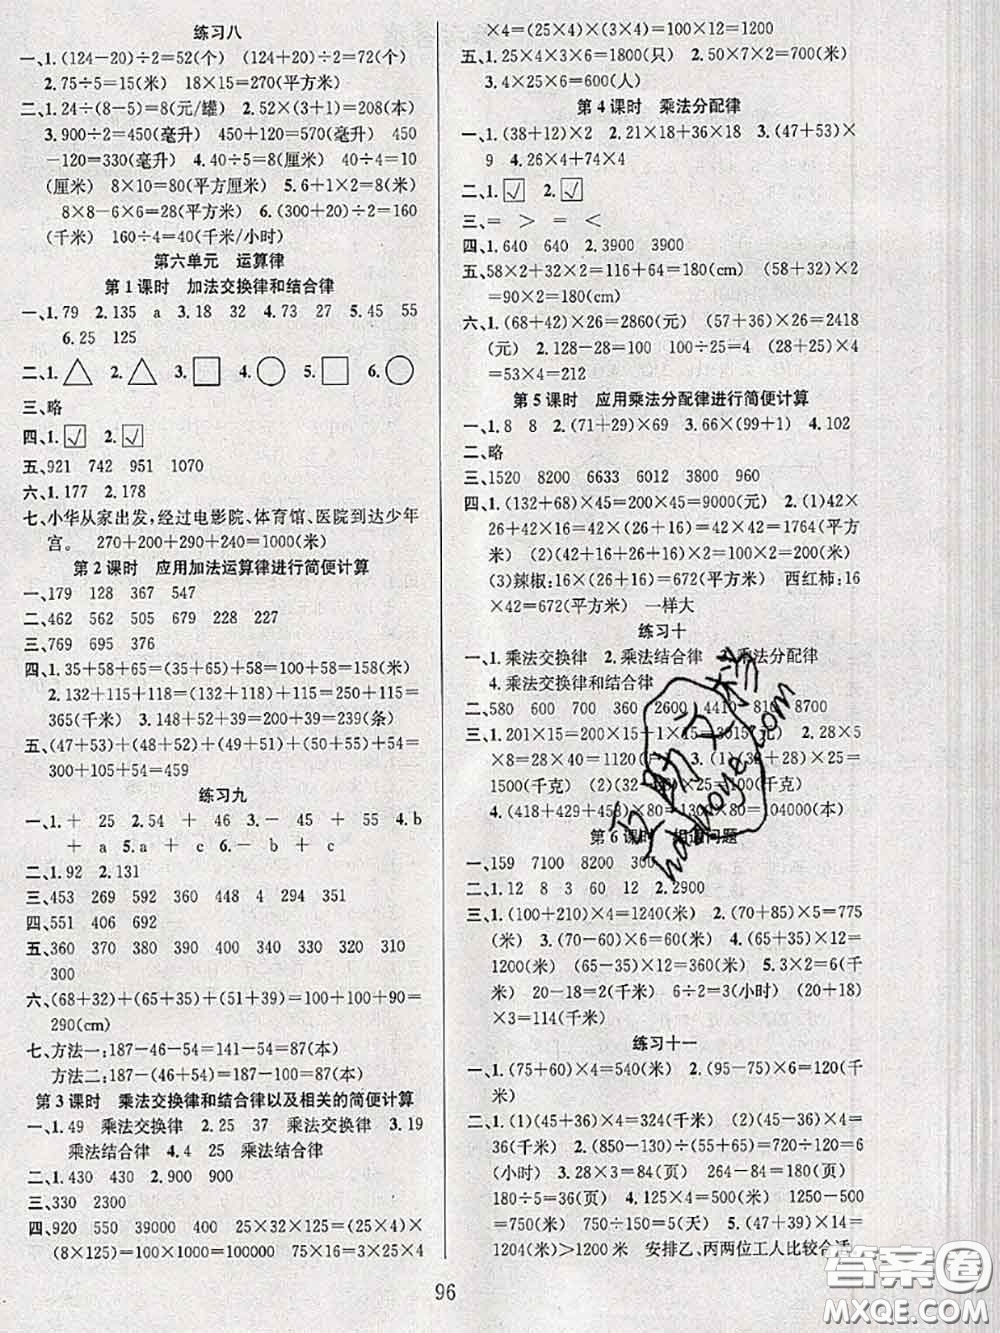 练习八
一、1.(124-20)÷2=52(个) (124+20)÷2=72(个)
2.75÷5=15(米) 18×15=270(平方米)
二、1.24÷(8-5)=8(元/罐) 2.52×(3+1)=208(本)
3.900÷2=450(毫升) 450+120=570(毫升) 450
-120=330(毫升) 4.40÷5=8(厘米) 40÷4=10
(厘米) 8×10=80(平方厘米) 5.6+1+1=8(米)
8×8-6×6=28(平方米) 6.(300+20)÷2=160
(千米) 160÷4=40(千米/小时)
第六单元 运算律
第1课时 加法交换律和结合律
一、1.79 2.135 a 3.18 32 4.73 27 5.45 55
6.25 125
二、1.△ 2.△ 3.□ 4.○ 5.□ 6.○
三、略
四、1.☑ 2.☑
五、921 742 951 1070
六、1.177 2.178
七、小华从家出发,经过电影院、体育馆、医院到达少年
宫。 270+200+290+240=1000(米)
第2课时 应用加法运算律进行简便计算
一、179 128 367 547
二、462 562 505 679 228 227
三、769 695 376
四、1.35+58+65=(35+65)+58=100+58=158(米)
2.132+115+118=(132+118)+115=250+115=
365(千米) 3.148+52+39=200+39=239(条)
五、(47+53)+(48+52)+(49+51)+(50+50)+54=
100+100+100+100+54=459
练习九
一、1.+ 25 2.54 + 46 3.- 45 + 55 4.b
+ a 5.a + c + b 6.- b + c
二、1.92 2.131
三、453 269 592 360 448 4 294 351
四、551 406 692
五、360 370 380 390 400 340 330 320 310
300
六、(68+32)+(65+35)+(51+49)=100+100+90=
290(cm)
七、方法一:187-46-54=141-54=87(本)
方法二:187-(46+54)=187-100=87(本)
第3课时 乘法交换律和结合律以及相关的简便计算
一、1.49 乘法交换律 2.25 37 乘法交换律 3.19
乘法结合律 4.4 25 乘法结合律
二、1.430 430 2.900 900
三、330 2300
四、920 550 39000 400 25×32×125=(25×4)×
(8×125)=100×1000=100000 75×16=3×25×4
×4=(25×4)×(3×4)=100×12=1200
五、1.25×4×3×6=1800(只) 2.7×50×2=700(米)
3.4×25×6=600(人)
第4课时 乘法分配律
一、1.(38+12)×2 2.21×18+36×18 3.(47+53)×
9 4.26×4+74×4
二、1.☑ 2.☑
三、= > = <
四、1.640 640 2.3900 3900
五、58×2+32×2=116+64=180(cm) (58+32)×2
=90×2=180(cm)
六、1.(68+42)×26=2860(元) (57+36)×26=2418
(元) 2.128-28=100 100÷25=4 (28+25)×4
=53×4=212
第5课时 应用乘法分配律进行简便计算
一、1.8 8 2.(71+29)×69 3.66×(99+1) 4.102
二、略
三、1520 8200 6633 6012 3800 960
四、1.(132+68)×45=200×45=9000(元) 2.(1)42×
26+42×16=42×(26+16)=42×42=1764(平方
米) (2)(42+26+16)×2=84×2=168(米)
(3)辣椒:16×42=672(平方米) 西红柿:16
×42=672(平方米) 一样大
练习十
一、1.乘法交换律 2.乘法结合律 3.乘法分配律
4.乘法交换律和结合律
二、580 600 700 360 2600 4410 810 8700
三、1.201×15=200×15+1×15=3015(元) 2.28×5
×8=28×40=1120 3.(1)(32+28)×25=
1500(千克) (2)(32-28)×25=100(千克)
4.(418+429+453)×80=1300×80=104000(本)
第6课时 相遇问题
一、159 7100 8200 300
二、1.12 8 3 60 12 2.2900
三、1.(100+210)×4=1240(米) 2.(70+85)×5=775
(米) 3.(70-60)×6=60(米) 4.(65+35)×12=
1200(米) (65-35)×12=360(米) 5.3×2=6(千
米) 20-18=2(千米) 6÷2=3(小时) (20+18)
×3=114(千米)
练习十一
一、1.(75+60)×4=540(米) 2.(95-75)×6=120(千
米)
二、1.(1)(45+36)×4=324(千米) (2)(45-36)×4=
36(千米) 2.(850-130)÷(55+65)=720÷120=6
(小时) 3.28×3=84(页) 264-84=180(页)
180÷5=36(页) 4.125×4=500(米) 1250-500
=750(米) 750÷5=150(米) 5.(47+39)×14=
1204(米)>1200米 安排乙、丙两位工人比较合适
96
hahaoye.com
答案圈
MXQE.COM